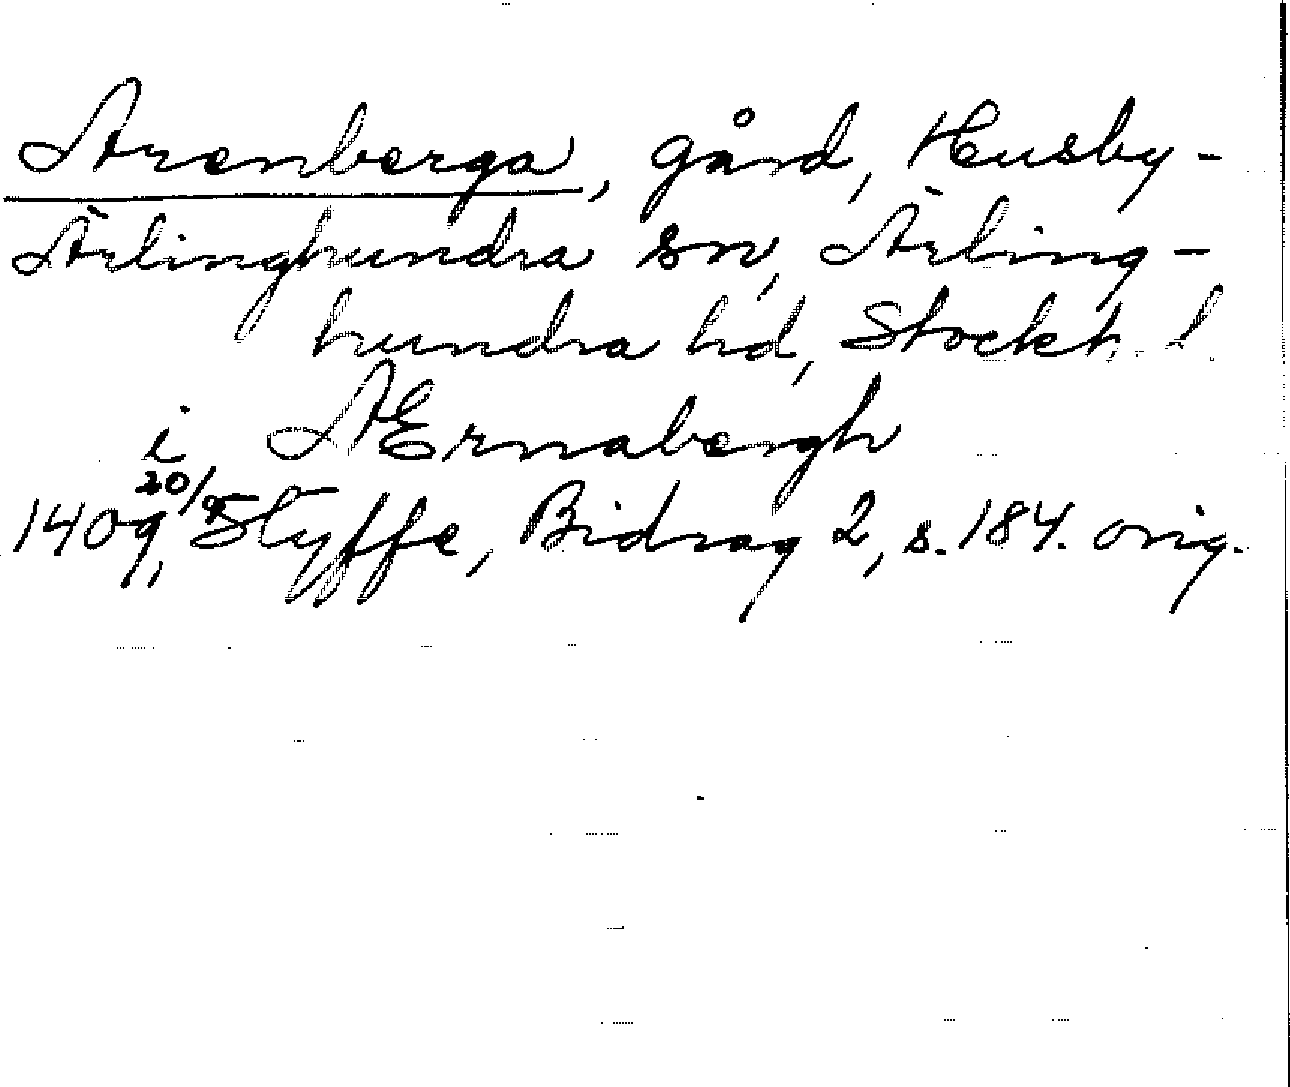 Arenberga, gård, Husby-
Ärlinghundra sn, Ärling-
hundra hd, Stockh. l.
i AErnabergh
1409 20/9, Styffe, Bidrag 2, s. 184. orig.